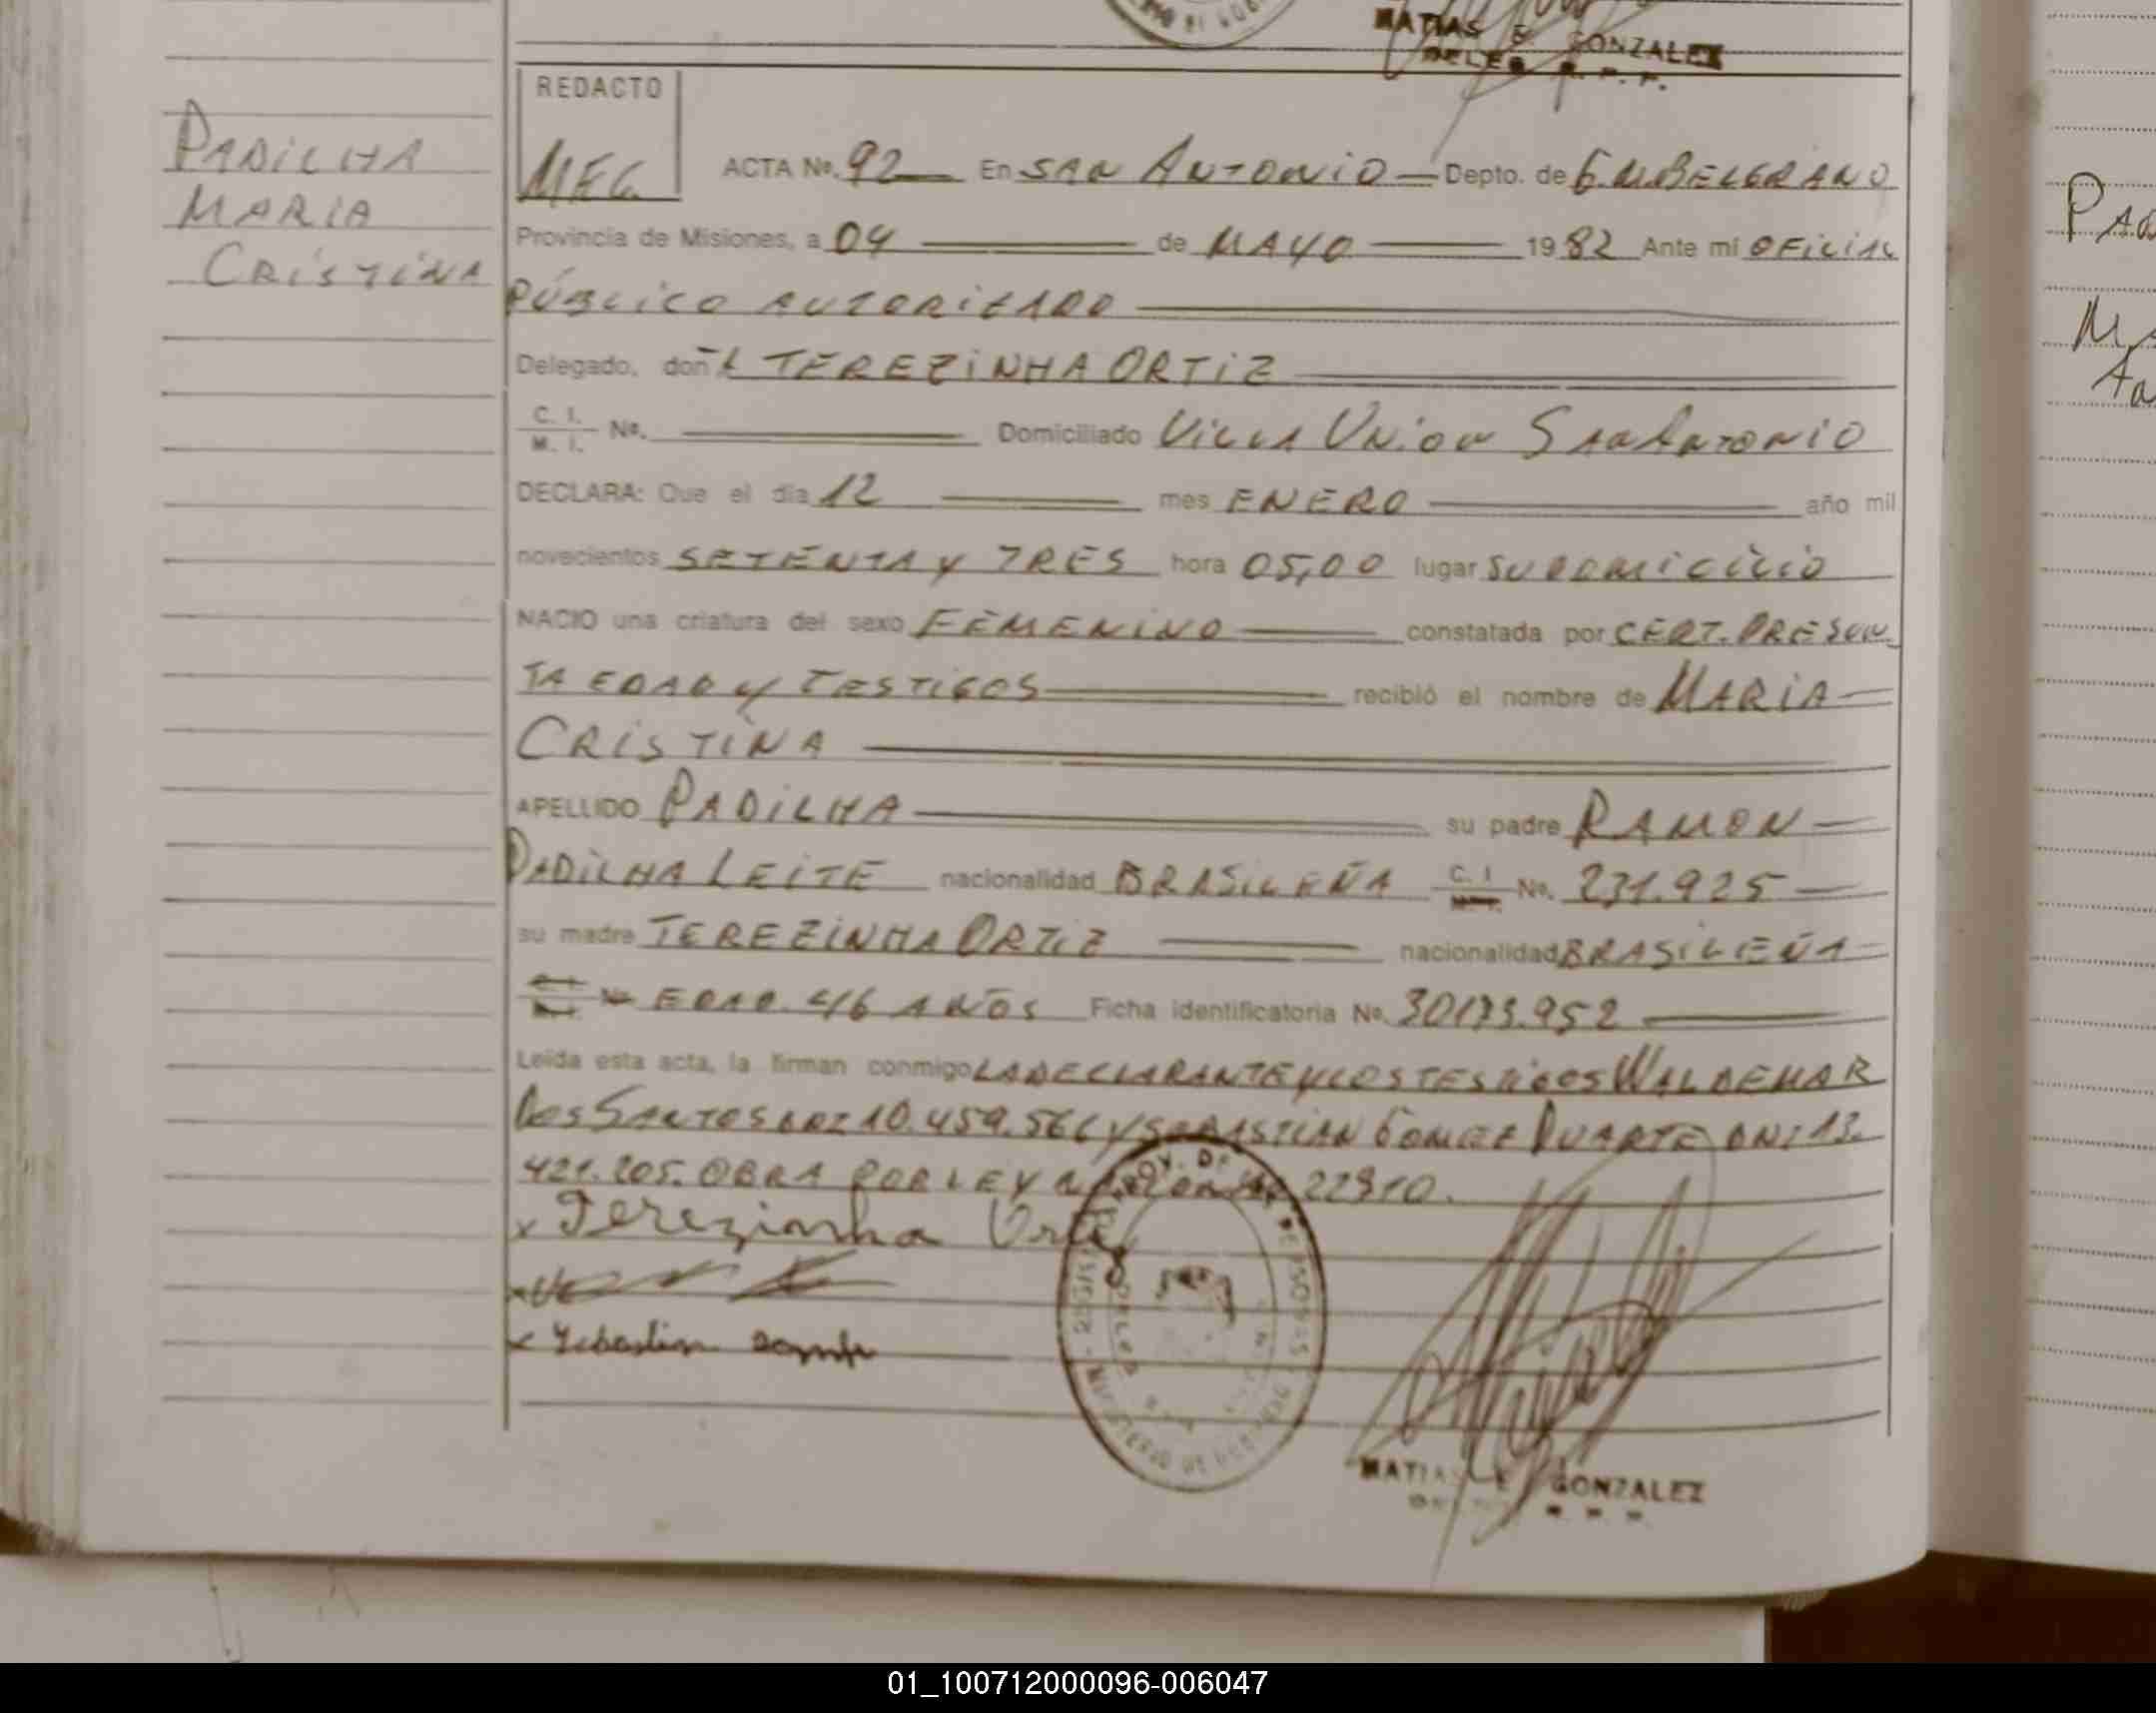 MATIAS E. GONZALEZ
DELEG. R. P. P.
REDACTO
MEG
PADILHA
MARIA
CRISTINA
ACTA No. 92 En SAN ANTONIO Depto. de G.M.BELGRANO
Provincia de Misiones, a 04 de MAYO 1982 Ante mí OFICIAL
PÚBLICO AUTORIZADO
Delegado, doñA TEREZINHA ORTIZ
C. I.
M. I. No. Domiciliado VILLA UNION SAN ANTONIO
DECLARA: Que el día 12 mes ENERO año mil
novecientos SETENTA Y TRES hora 05,00 lugar SU DOMICILIO
NACIO una criatura del sexo FEMENINO constatada por CERT. PRESUN
TA EDAD Y TESTIGOS recibió el nombre de MARIA
CRISTINA
APELLIDO PADILHA su padre RAMON
PADILHA LEITE nacionalidad BRASILEÑA C. I. No. 231.925
su madre TEREZINHA ORTIZ nacionalidad BRASILEÑA
EDAD. 46 AÑOS Ficha identificatoria No. 30173.952
Leída esta acta, la firman conmigo LA DECLARANTE Y LOS TESTIGOS WALDEMAR
DOS SANTOS DNI 10.459.566 Y SEBASTIAN GOMEZ DUARTE DNI 13.
421.205. OBRA POR LEY NACIONAL 22910.
x Terezinha Ortiz
x Sebastian Gomez
MATIAS E GONZALEZ
PAD
01_100712000096-006047